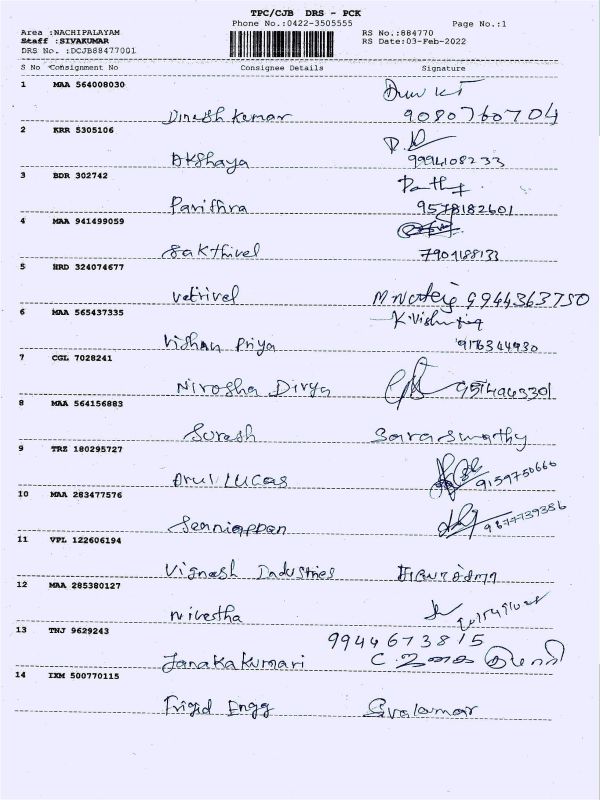 TPC/CJB DRS - PCK
Phone No.:0422-3505555 Page No.:1
Area :NACHIPALAYAM RS No.:884770
Staff :SIVAKUMAR RS Date:03-Feb-2022
DRS No. :DCJB88477001
S No Consignment No Consignee Details Signature
1 MAA 564008030
Dinesh kumar 9080760704
2 KRR 5305106
Akshaya 9994108233
3 BDR 302742
Pavithra 9578182601
4 MAA 941499059
Sakthivel
5 HRD 324074677
Vetrivel 9944363750
6 MAA 565437335
Vishnu Priya 9176344930
7 CGL 7028241
Nirosha Divya
8 MAA 564156883
Suresh Saraswathy
9 TRZ 180295727
Arul Lucas 9159750666
10 MAA 283477576
Senniappan 9877739386
11 VPL 122606194
Vignesh Industries
12 MAA 285380127
Nivestha
13 TNJ 9629243 9944673815
Janakakumari
14 IXM 500770115
Frigid Engg Sivakumar